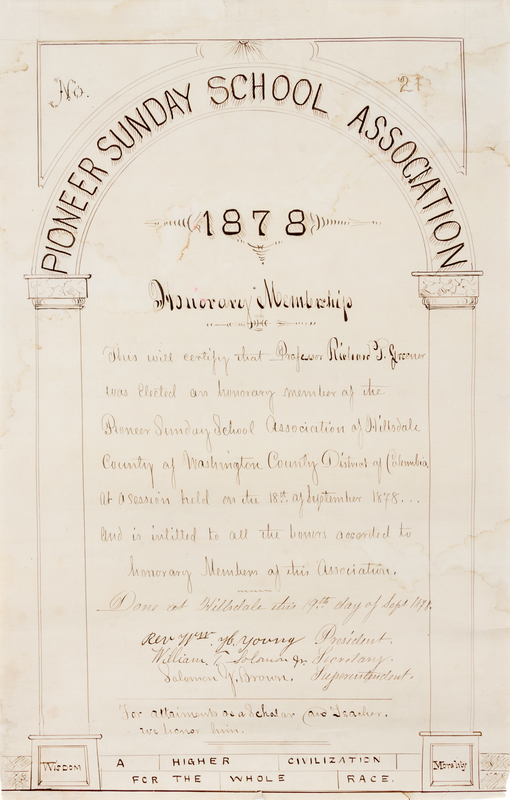 No. 21
PIONEER SUNDAY SCHOOL ASSOCIATION
1878
Honorary Membership
This will certify that Professor Richard T. Greener
was Elected an honorary member of the
Pioneer Sunday School Association of Hillsdale
County of Washington County District of Columbia
at a session held on the 18th of September 1878...
And is intitled to all the honors accorded to
honorary Members of this Association.
Done at Hillsdale this 19th day of Sept 1878.
Rev Wm. H. Young President.
William T. Solomon Jr. Secretary.
Solomon G. Brown. Superintendent.
For attainments as a Scholar and Teacher.
we honor him.
WISDOM A HIGHER CIVILIZATION Morality
FOR THE WHOLE RACE.